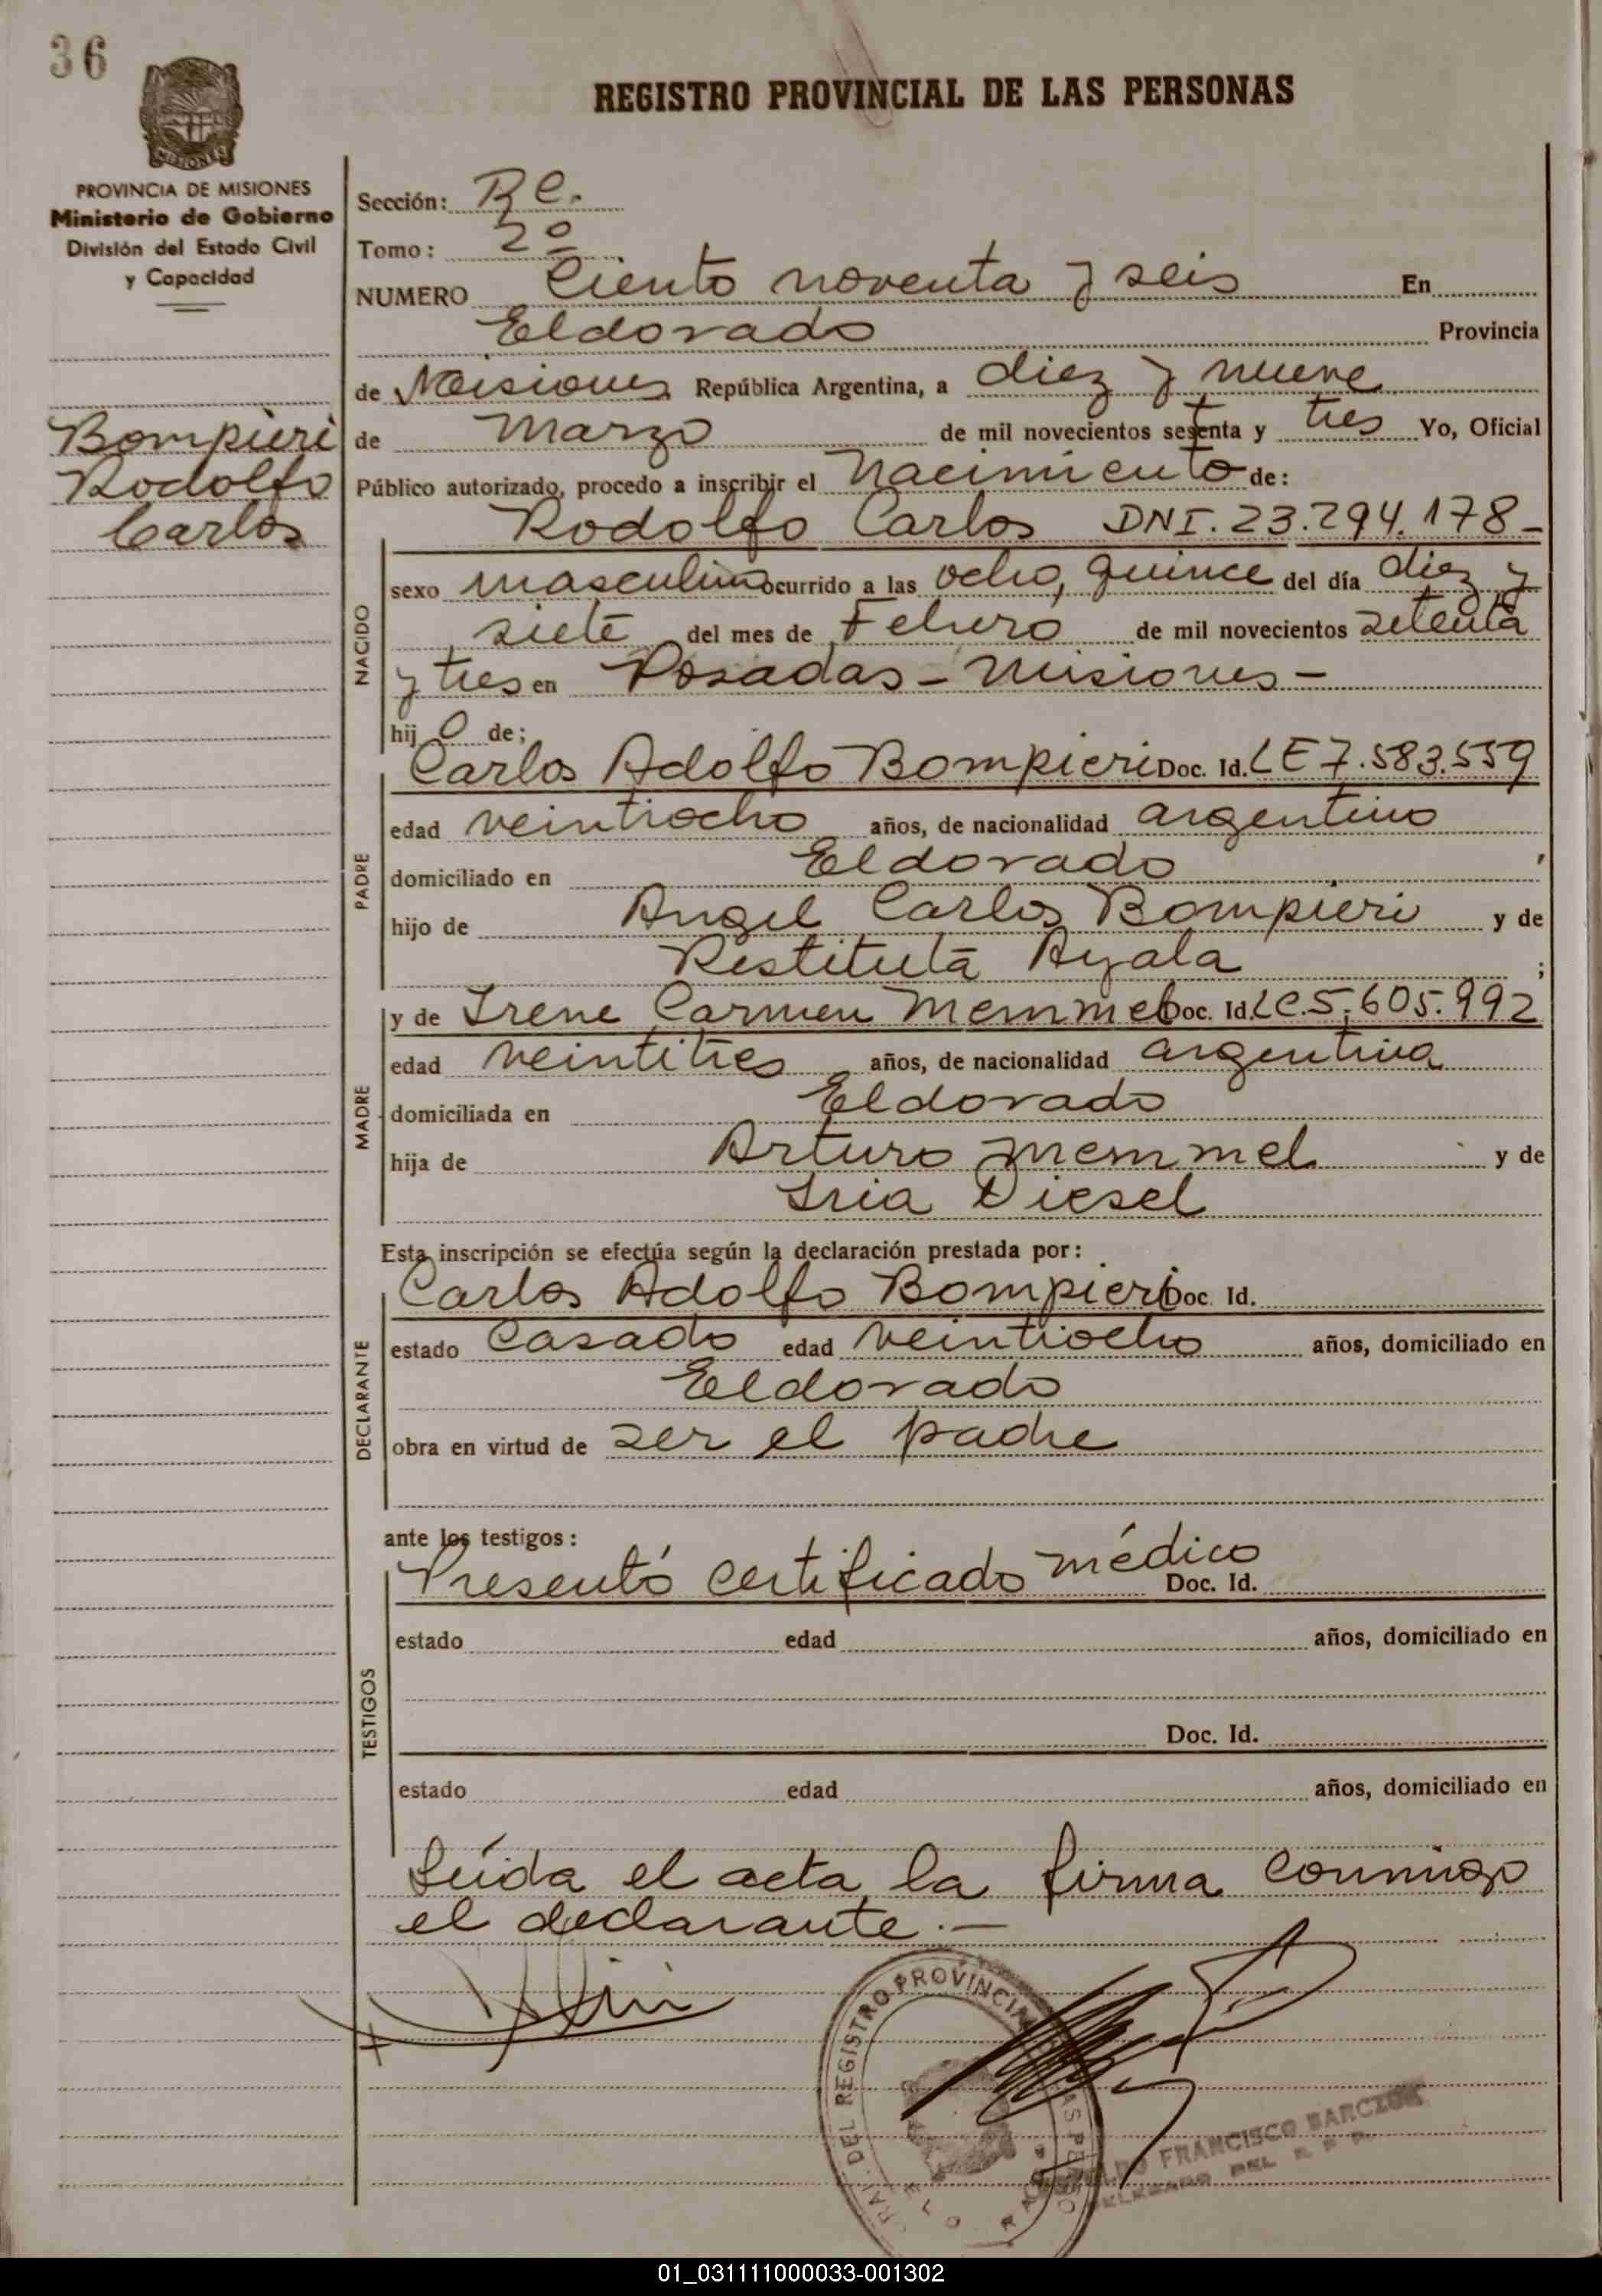 36
REGISTRO PROVINCIAL DE LAS PERSONAS
MISIONES
PROVINCIA DE MISIONES
Ministerio de Gobierno
División del Estado Civil
y Capacidad
Bompieri
Rodolfo
Carlos
Sección: Re.
Tomo: 2º
NUMERO Ciento noventa y seis En
Eldorado Provincia
de Misiones República Argentina, a diez y nueve
de Marzo de mil novecientos setenta y tres Yo, Oficial
Público autorizado, procedo a inscribir el Nacimiento de:
Rodolfo Carlos DNI. 23.294.178-
NACIDO
sexo masculino ocurrido a las ocho, quince del día diez y
siete del mes de Febrero de mil novecientos setenta
y tres en Posadas - Misiones -
hijo de;
PADRE
Carlos Adolfo Bompieri Doc. Id. LE 7.583.559
edad veintiocho años, de nacionalidad argentino
domiciliado en Eldorado ,
hijo de Angel Carlos Bompieri y de
Restituta Ayala ;
MADRE
y de Irene Carmen Memmel Doc. Id. LC.5.605.992
edad veintitres años, de nacionalidad argentina
domiciliada en Eldorado
hija de Arturo Memmel y de
Iria Diesel
Esta inscripción se efectúa según la declaración prestada por:
DECLARANTE
Carlos Adolfo Bompieri Doc. Id.
estado Casado edad veintiocho años, domiciliado en
Eldorado
obra en virtud de ser el padre
ante los testigos:
TESTIGOS
Presentó certificado médico Doc. Id.
estado edad años, domiciliado en
Doc. Id.
estado edad años, domiciliado en
Leída el acta la firma conmigo
el declarante.-
DEL REGISTRO PROVINCIAL
FRANCISCO
DEL
01_031111000033-001302